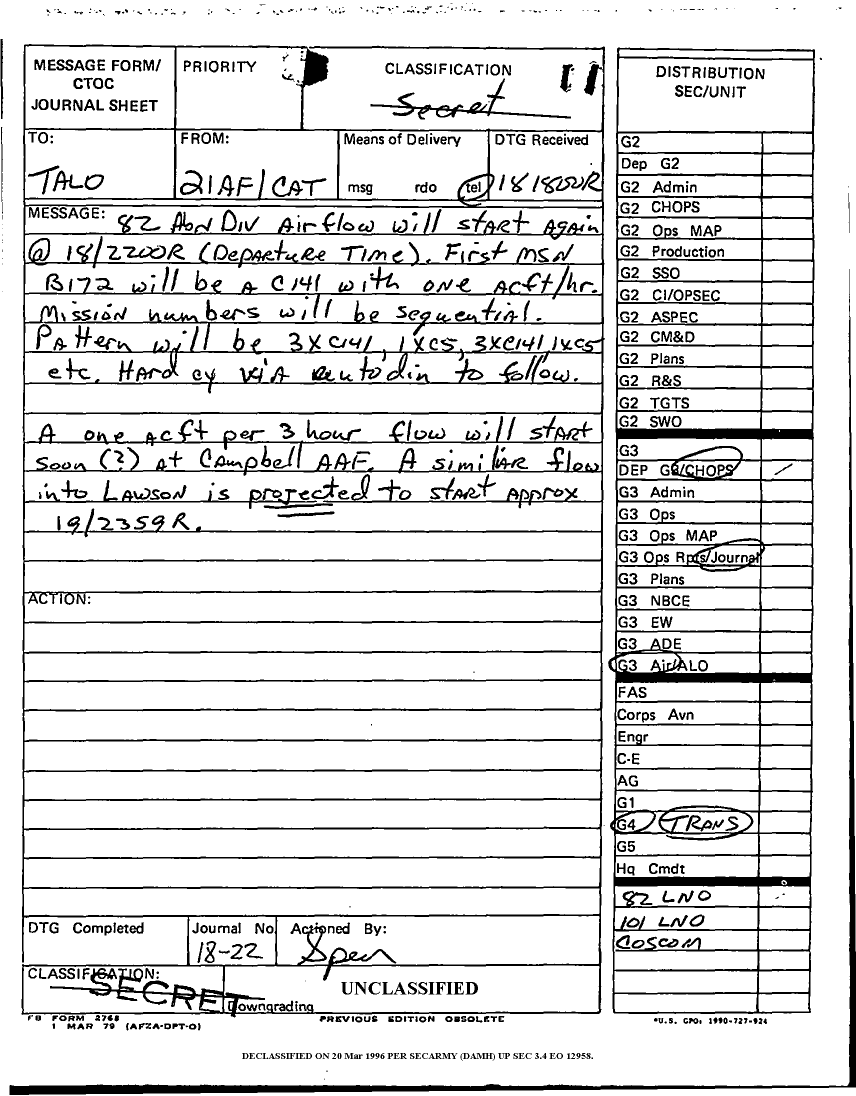 MESSAGE FORM/
CTOC
JOURNAL SHEET
PRIORITY
CLASSIFICATION
Secret
TO:
TALO
FROM:
21AF/CAT
Means of Delivery
msg rdo tel
DTG Received
181820R
MESSAGE: 82 Abn Div Airflow will start again
@ 18/2200R (Departure Time). First msn
B172 will be a C141 with one acft/hr.
Mission numbers will be sequential.
Pattern will be 3XC141, 1XC5, 3XC141, 1XC5
etc. Hard cy via autodin to follow.
A one acft per 3 hour flow will start
soon (?) at Campbell AAF. A similiar flow
into Lawson is projected to start approx
19/2359R.
ACTION:
DTG Completed
Journal No.
18-22
Actioned By:
CLASSIFICATION:
SECRET
Downgrading
UNCLASSIFIED
FB FORM 2768
1 MAR 79 (AFZA-DPT-O)
PREVIOUS EDITION OBSOLETE
DISTRIBUTION
SEC/UNIT
G2
Dep G2
G2 Admin
G2 CHOPS
G2 Ops MAP
G2 Production
G2 SSO
G2 CI/OPSEC
G2 ASPEC
G2 CM&D
G2 Plans
G2 R&S
G2 TGTS
G2 SWO
G3
DEP G3/CHOPS
G3 Admin
G3 Ops
G3 Ops MAP
G3 Ops Rpts/Journal
G3 Plans
G3 NBCE
G3 EW
G3 ADE
G3 Air/ALO
FAS
Corps Avn
Engr
C-E
AG
G1
G4 TRANS
G5
Hq Cmdt
82 LNO
101 LNO
COSCOM
*U.S. GPO: 1990-727-924
DECLASSIFIED ON 20 Mar 1996 PER SECARMY (DAMH) UP SEC 3.4 EO 12958.